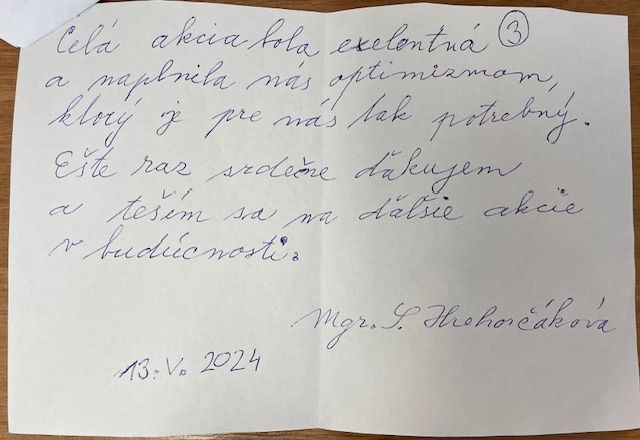 Celá akcia bola exelentná ③
a naplnila nás optimizmom,
ktorý je pre nás tak potrebný.
Ešte raz srdečne ďakujem
a teším sa na ďaľšie akcie
v budúcnosti.
Mgr. S. Hrehorčáková
13. V. 2024